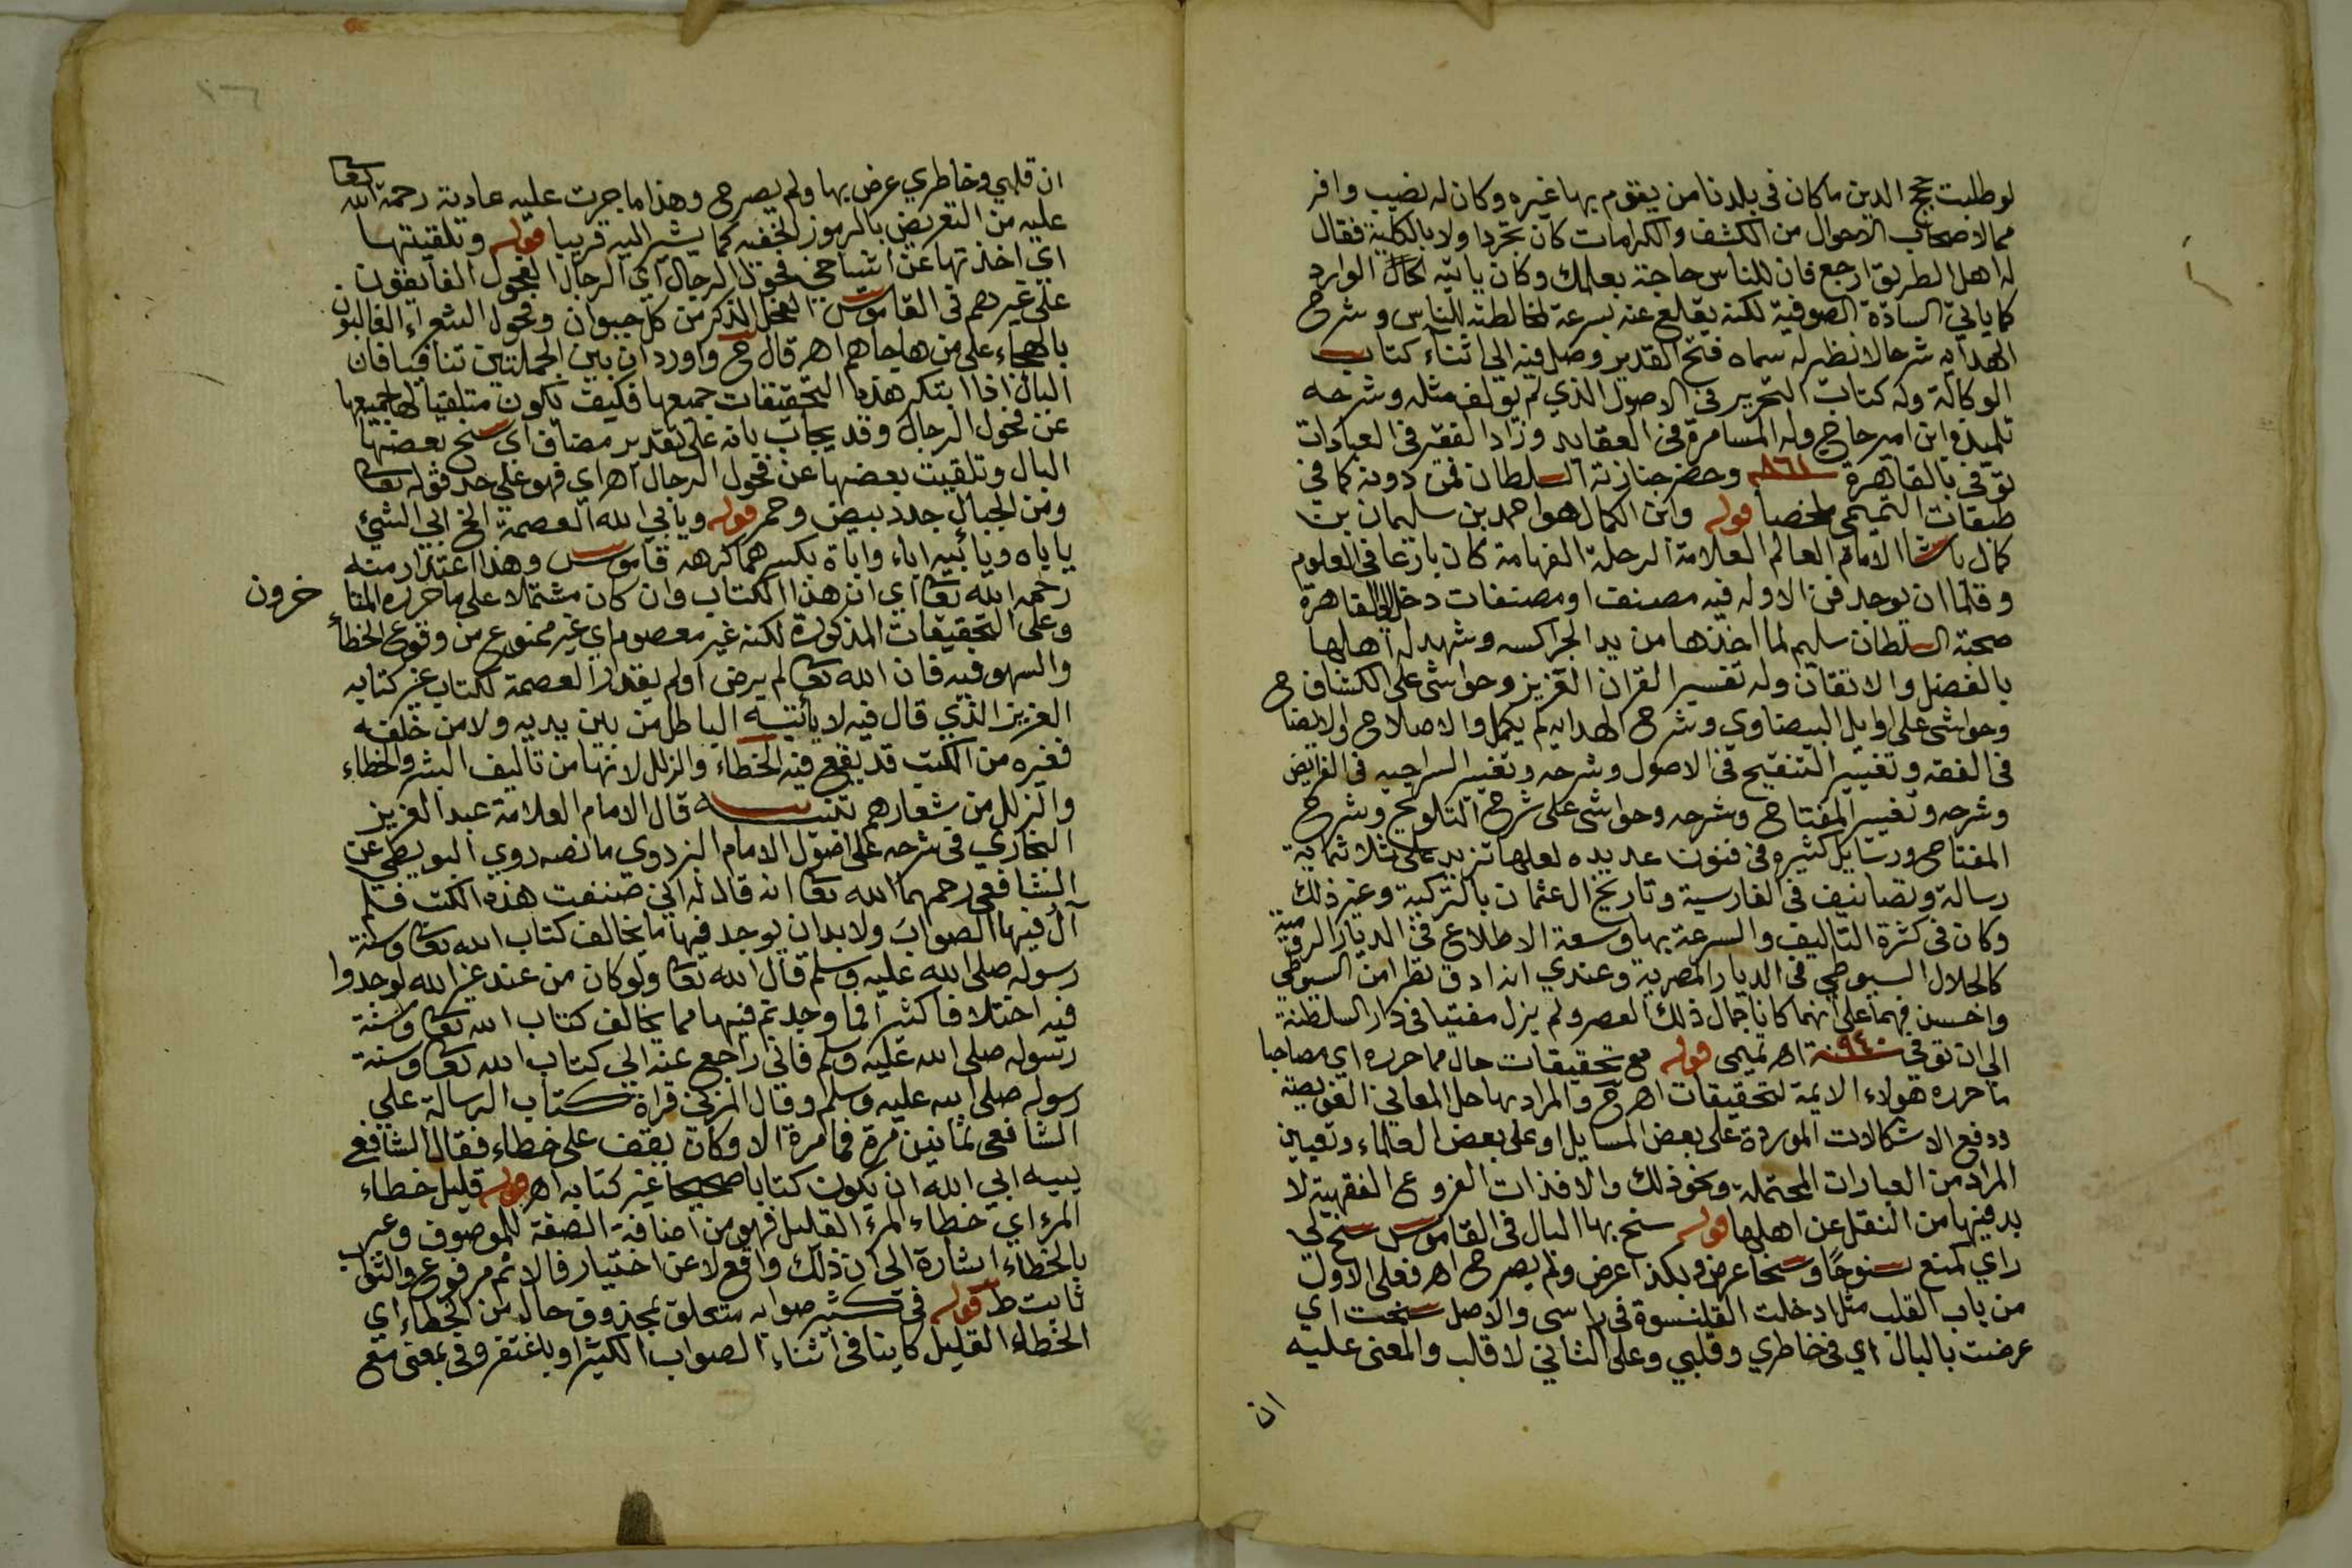 لو طلبت حجج الدين ما كان في بلدنا من يقوم بها غيره وكان له نصيب وافر
مما لاصحاب الاحوال من الكشف والكرامات كان تجرد اولا بالكلية فقال
له اهل الطريق ارجع فان للناس حاجة بعلمك وكان ياتيه الحال الوارد
كما ياتي السادة الصوفية لكنه يقلع عنه بسرعة لمخالطته للناس وشرح
الهدايه شرحا لا نظير له سماه فتح القدير وصل فيه الى اثناء كتاب
الوكالة وله كتاب التحرير في الاصول الذي لم يولف مثله وشرحه
تلميذه ابن امير حاج وله المسامرة في العقايد وزاد الفقير في العبادات
توفي بالقاهرة سنة ٨٦١ وحضر جنازته السلطان فمن دونه كما في
طبقات التميمي ملخصا قوله وابن الكمال هو احمد بن سليمان بن
كمال باشا الامام العالم العلامة الرحلة الفهامة كان بارعا في العلوم
وقلما ان يوجد فن الا وله فيه مصنف او مصنفات دخل الى القاهرة
صحبة السلطان سليم لما اخذها من يد الجراكسه وشهد له اهلها
بالفضل والاتقان وله تفسير القران العزيز وحواشي على الكشاف
وحواشي على اوايل البيضاوي وشرح الهدايه لم يكمل والاصلاح والايضاح
في الفقه وتغيير التنقيح في الاصول وشرحه وتغيير السراجيه في الفرايض
وشرحه وتغيير المفتاح وشرحه وحواشي على شرح التلويح وشرح
المفتاح ورسايل كثيره في فنون عديده لعلها تزيد على ثلاثماية
رسالة وتصانيف في الفارسية وتاريخ ال عثمان بالتركية وغير ذلك
وكان في كثرة التاليف والسرعة بها وسعة الاطلاع في الديار الرومية
كالجلال السيوطي في الديار المصرية وعندي انه ادق نظرا من السيوطي
واحسن فهما على انهما كانا جمال ذلك العصر ولم يزل مفتيا في دار السلطنة
الى ان توفي سنة ٩٤٠ اهـ تميمي قوله مع تحقيقات حال مما حرره اي مصاحبا
ما حرره هولاء الايمة لتحقيقات اهـ ح والمراد بها حل المعاني العويصة
ودفع الاشكالات الموردة على بعض المسايل او على بعض العلماء وتعيين
المراد من العبارات المحتملة ونحو ذلك والا فذات الفروع الفقهية لا
بد فيها من النقل عن اهلها قوله سنح بها البال في القاموس سنح لي
راي كمنع سنوحا وسنحا عرض وبكذا عرض ولم يصرح اهـ فعلى الاول
من باب القلب مثل ادخلت القلنسوة في راسي والاصل سنحت اي
عرضت بالبال اي في خاطري وقلبي وعلى الثاني لا قلب والمعنى عليه
ان
١٦
ان قلبي وخاطري عرض بها ولم يصرح وهذا ما جرت عليه عادته رحمة الله تعا
عليه من التعريض بالرموز الخفيه كما يشير اليه قريبا قوله وتلقيتها
اي اخذتها عن اشياخي فحول الرجال اي الرجال الفحول الفايقون
على غيرهم في القاموس الفحل الذكر من كل حيوان وفحول الشعراء الغالبون
بالهجاء على من هاجاهم اهـ قال ح واورد ان بين الجملتين تنافيا فان
البال اذا ابتكر هذه التحقيقات جميعها فكيف يكون متلقيا لها جميعها
عن فحول الرجال وقد يجاب بانه على تقدير مضاف اي سنح بعضها
البال وتلقيت بعضها عن فحول الرجال اهـ اي فهو على حد قوله تعا
ومن الجبال جدد بيض وحمر قوله ويابى الله العصمة الخ ابي الشئ
ياباه ويابيه اباء واباة بكسرهما كرهه قاموس وهذا اعتذار منه
رحمه الله تعا اي ان هذا الكتاب وان كان مشتملا على ما حرره المتا خرون
وعلى التحقيقات المذكورة لكنه غير معصوم اي غير ممنوع من وقوع الخطأ
والسهو فيه فان الله تعا لم يرض او لم يقدر العصمة لكتاب غير كتابه
العزيز الذي قال فيه لا يأتيه الباطل من بين يديه ولا من خلفه
فغيره من الكتب قد يقع فيه الخطاء والزلل لانها من تاليف البشر والخطاء
والزلل من شعارهم تنبيه قال الامام العلامة عبد العزيز
البخاري في شرحه على اصول الامام البزدوي ما نصه روي البويطي عن
الشافعي رحمهما الله تعا انه قال له اني صنفت هذه الكتب فلم
آل فيها الصواب ولا بد ان يوجد فيها ما يخالف كتاب الله تعا وسنة
رسوله صلى الله عليه وسلم قال الله تعا ولو كان من عند غير الله لوجدوا
فيه اختلافا كثيرا فما وجدتم فيها مما يخالف كتاب الله تعا وسنة
رسوله صلى الله عليه وسلم فاني راجع عنه الى كتاب الله تعا وسنة
رسوله صلى الله عليه وسلم وقال المزني قراة كتاب الرسالة على
الشافعي ثمانين مرة فما مرة الا وكان يقف على خطاء فقال الشافعي
هيه ابي الله ان يكون كتابا صحيحا غير كتابه اهـ قوله قليل خطاء
المرء اي خطاء المرء القليل فهو من اضافة الصفة للموصوف وعبر
بالخطاء اشارة الى ان ذلك واقع لا عن اختيار فالاثم مرفوع والثواب
ثابت ط قوله في كثير صوابه متعلق بمحذوف حال من الخطاء اي
الخطاء القليل كاينا في اثناء الصواب الكثير او باغتفر وفي بمعنى مع